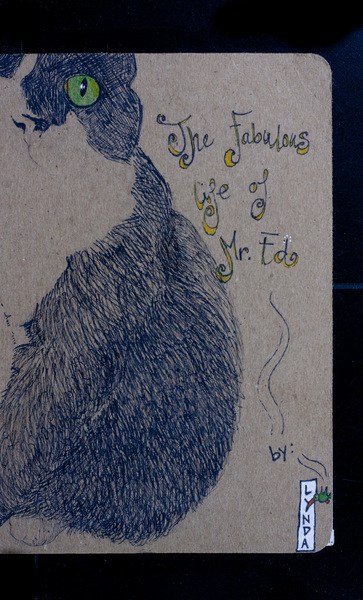 The Fabulous
life of
Mr. Ed
by:
LYNDA